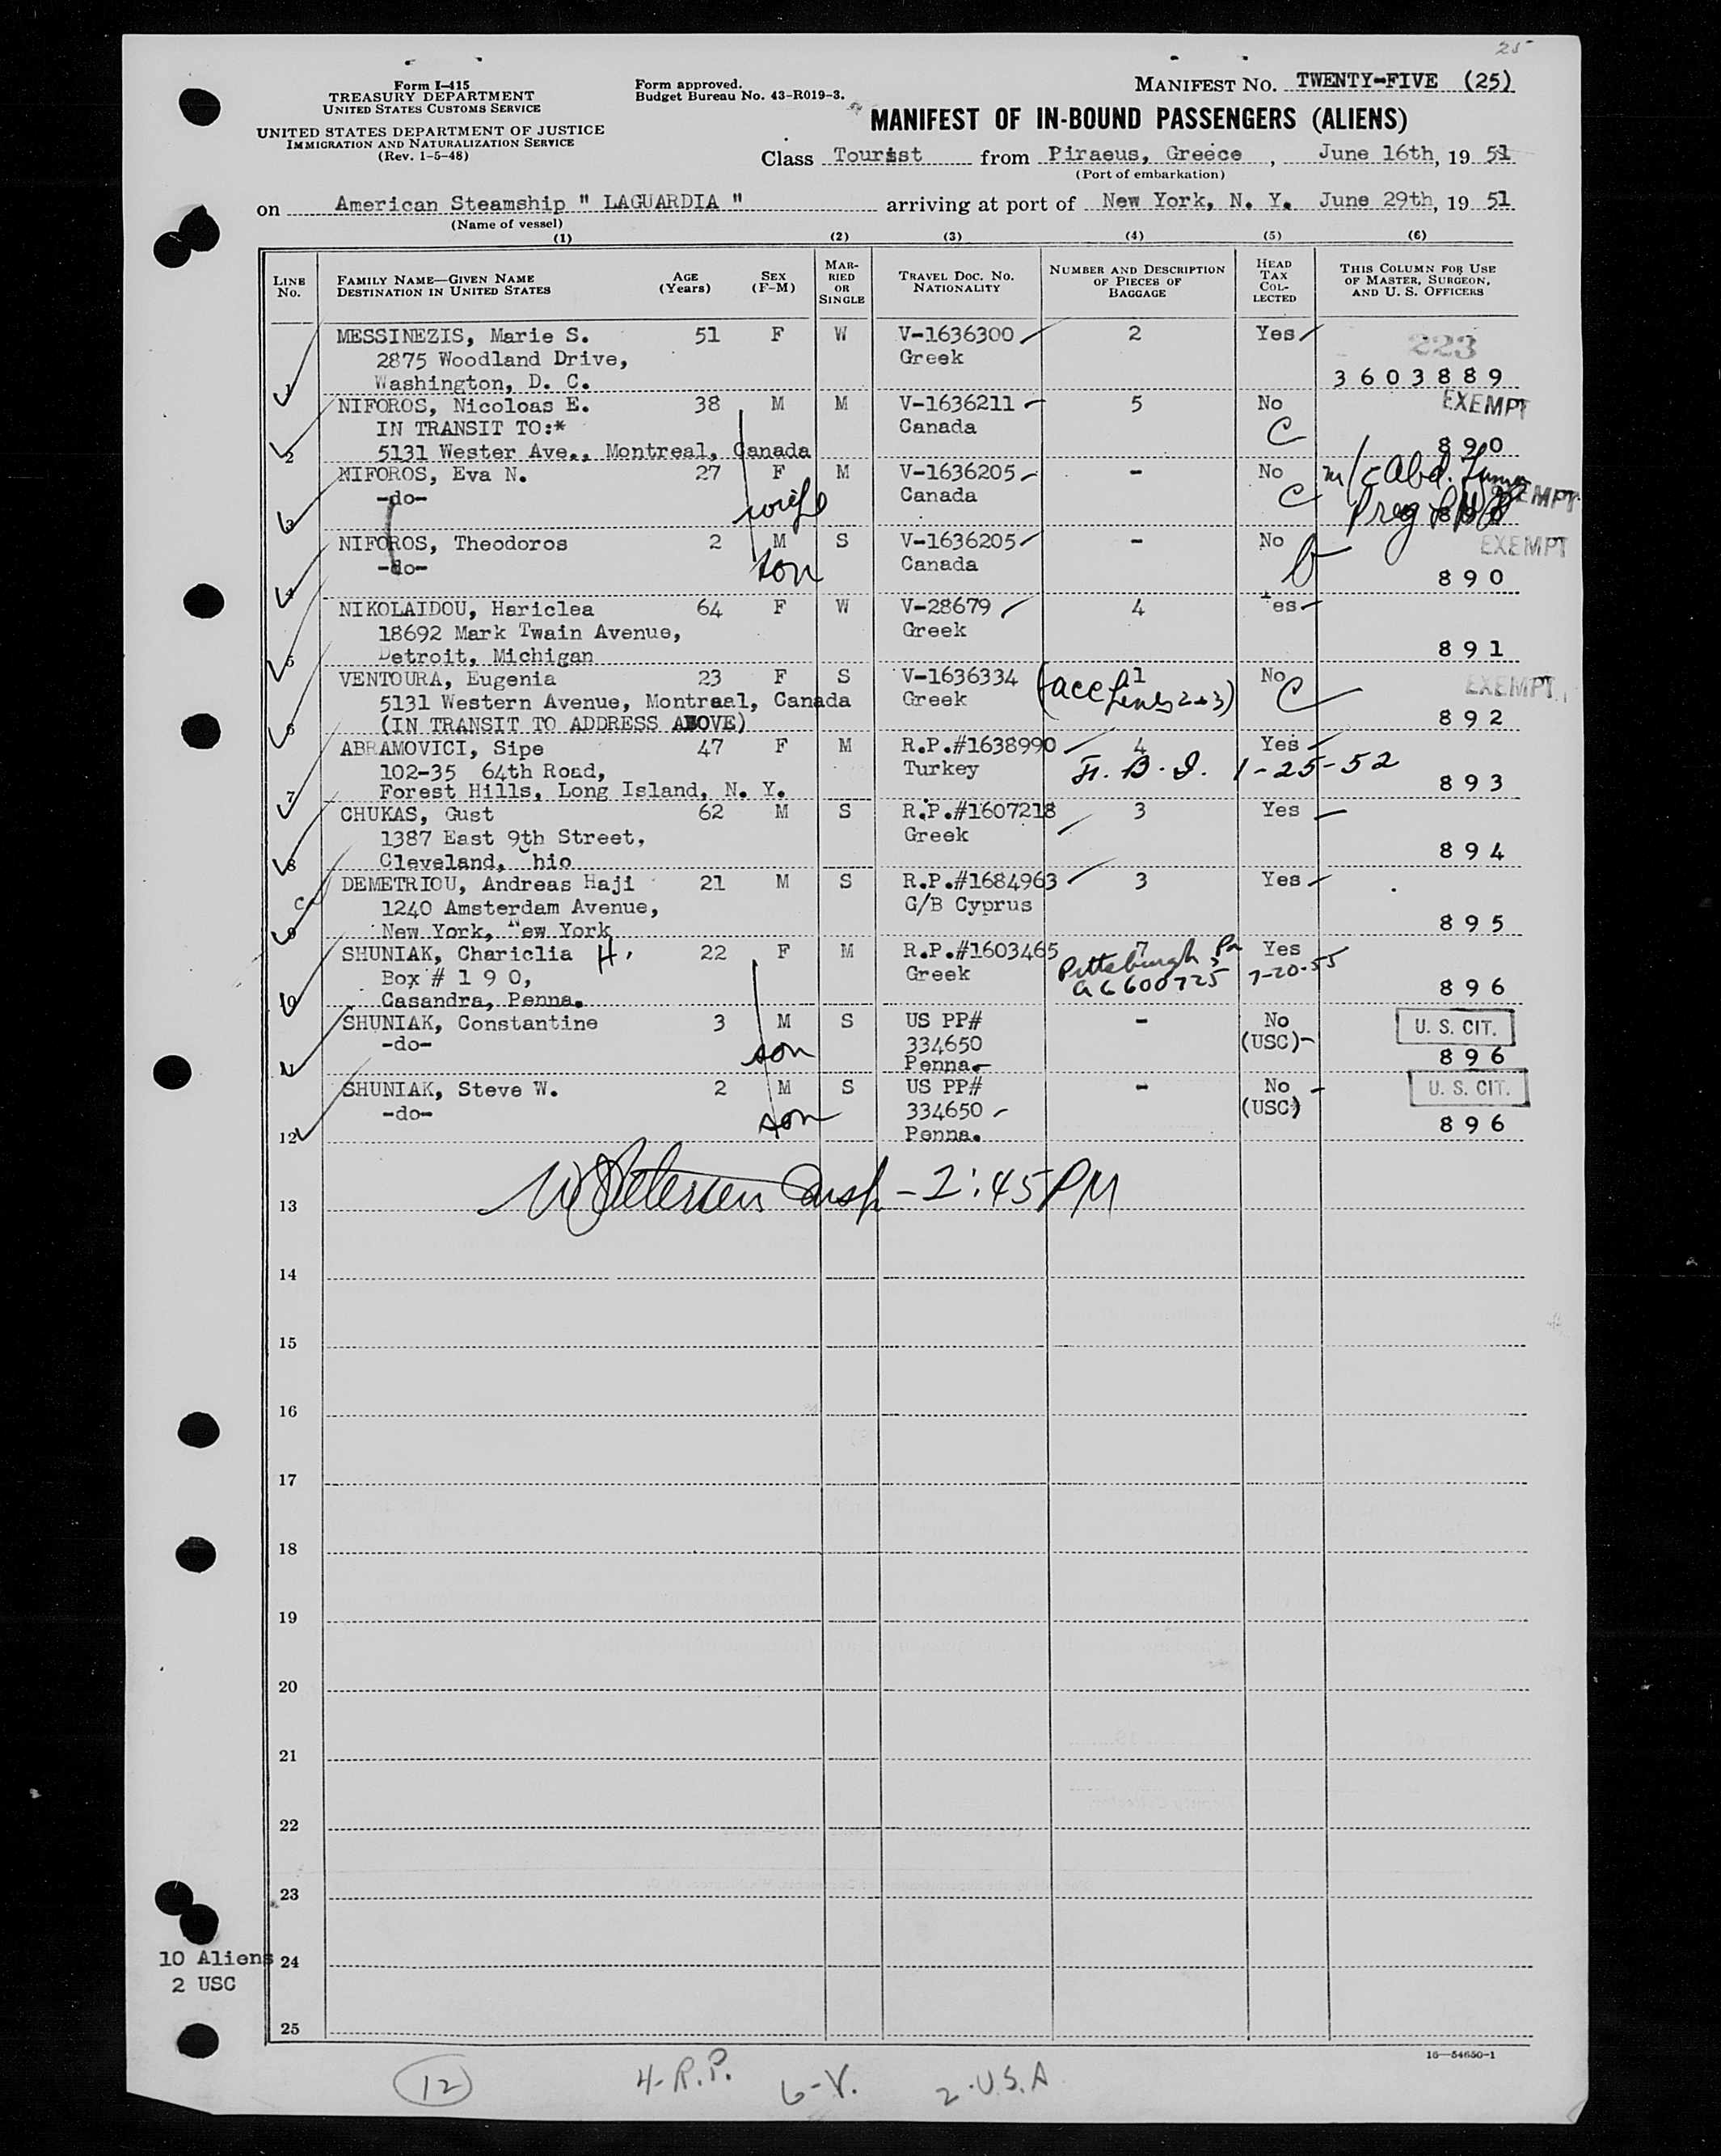 25
Form I-415
TREASURY DEPARTMENT
UNITED STATES CUSTOMS SERVICE
UNITED STATES DEPARTMENT OF JUSTICE
IMMIGRATION AND NATURALIZATION SERVICE
(Rev. 1-5-48)
Form approved.
Budget Bureau No. 43-R019-3.
MANIFEST NO. TWENTY-FIVE (25)
MANIFEST OF IN-BOUND PASSENGERS (ALIENS)
Class Tourist from Piraeus, Greece, June 16th, 19 51
(Port of embarkation)
on American Steamship " LAGUARDIA " arriving at port of New York, N. Y. June 29th, 19 51
(Name of vessel)
(1) (2) (3) (4) (5) (6)
LINE NO. FAMILY NAME—GIVEN NAME DESTINATION IN UNITED STATES AGE (Years) SEX (F-M) MARRIED OR SINGLE TRAVEL DOC. NO. NATIONALITY NUMBER AND DESCRIPTION OF PIECES OF BAGGAGE HEAD TAX COLLECTED THIS COLUMN FOR USE OF MASTER, SURGEON, AND U. S. OFFICERS
MESSINEZIS, Marie S. 51 F W V-1636300 2 Yes 223
2875 Woodland Drive, Greek
1 Washington, D. C. 3603889
NIFOROS, Nicoloas E. 38 M M V-1636211 5 No EXEMPT
IN TRANSIT TO:* Canada C
2 5131 Wester Ave., Montreal, Canada 890
NIFOROS, Eva N. 27 F M V-1636205 - No m/c Abd. Tumor
-do- wife Canada C EXEMPT
3 Preg
NIFOROS, Theodoros 2 M S V-1636205 - No EXEMPT
-do- son Canada
4 890
NIKOLAIDOU, Hariclea 64 F W V-28679 4 Yes
18692 Mark Twain Avenue, Greek
5 Detroit, Michigan 891
VENTOURA, Eugenia 23 F S V-1636334 1 No EXEMPT
5131 Western Avenue, Montreal, Canada Greek (acc Lines 2+3) C
6 (IN TRANSIT TO ADDRESS ABOVE) 892
ABRAMOVICI, Sipe 47 F M R.P.#1638990 4 Yes
102-35 64th Road, Turkey F. B. I. 1-25-52
7 Forest Hills, Long Island, N. Y. 893
CHUKAS, Gust 62 M S R.P.#1607218 3 Yes
1387 East 9th Street, Greek
8 Cleveland, Ohio 894
DEMETRIOU, Andreas Haji 21 M S R.P.#1684963 3 Yes
C 1240 Amsterdam Avenue, G/B Cyprus
9 New York, New York 895
SHUNIAK, Chariclia H. 22 F M R.P.#1603465 7 Yes
Box # 1 9 0, Greek Pittsburgh, Pa 7-20-55
10 Casandra, Penna. 6600725 896
SHUNIAK, Constantine 3 M S US PP# - No U. S. CIT.
-do- son 334650 (USC)
11 Penna. 896
SHUNIAK, Steve W. 2 M S US PP# - No U. S. CIT.
-do- son 334650 (USC)
12 Penna. 896
Insp - 2:45 PM
13
14
15
16
17
18
19
20
21
22
23
10 Aliens 24
2 USC
25
16—54650-1
12 4-R.P. 6-V. 2-U.S.A